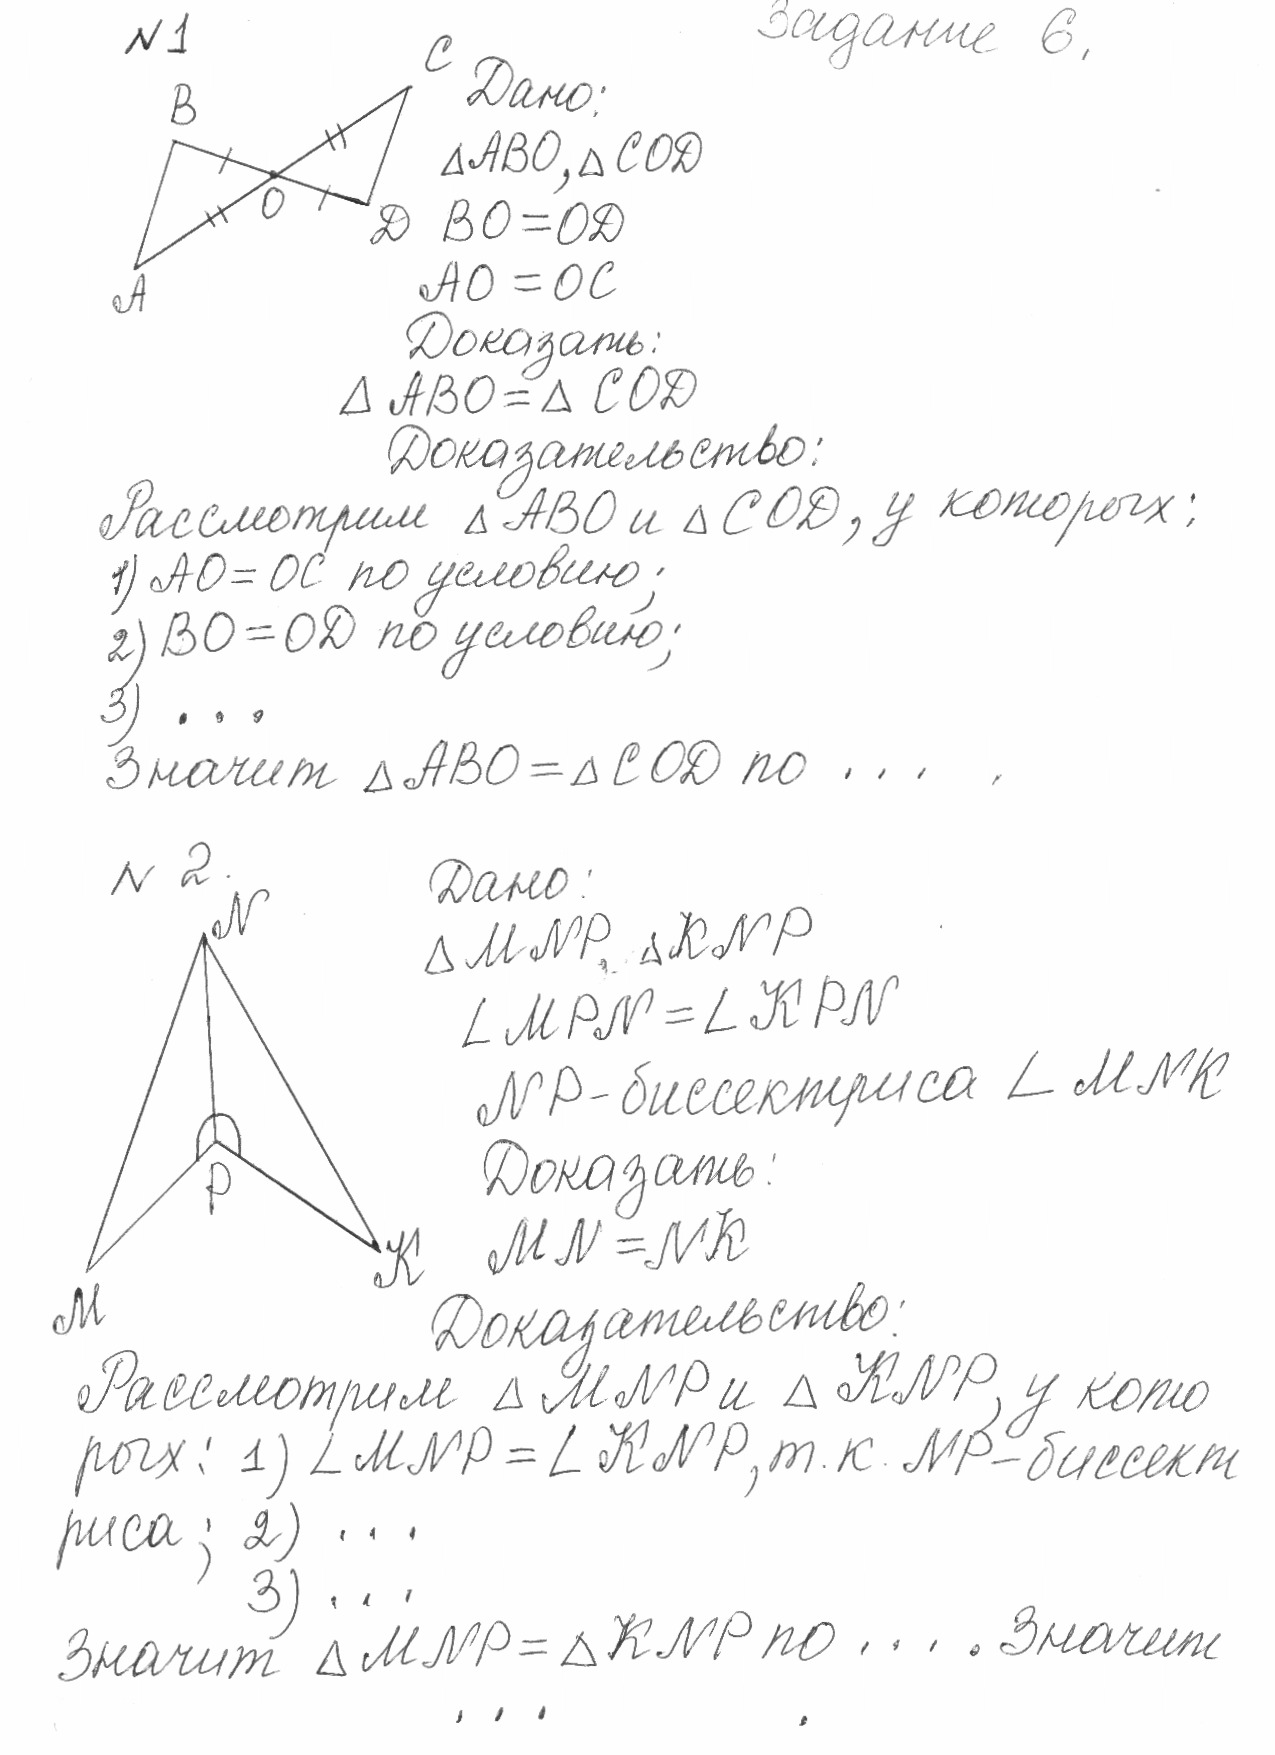 N 1
Задание 6.
C
B
Дано:
△ABO, △COD
O
D
BO=OD
A
AO=OC
Доказать:
△ABO=△COD
Доказательство:
Рассмотрим △ABO и △COD, у которых:
1) AO=OC по условию;
2) BO=OD по условию;
3) ...
Значит △ABO=△COD по ... .
N 2.
N
Дано:
△MNP, △KNP
∠MPN=∠KPN
NP-биссектриса ∠MNK
P
Доказать:
MN=NK
K
M
Доказательство:
Рассмотрим △MNP и △KNP, у кото
рых: 1) ∠MNP=∠KNP, т.к. NP-биссект
риса; 2) ...
3) ...
Значит △MNP=△KNP по .... Значит
... .